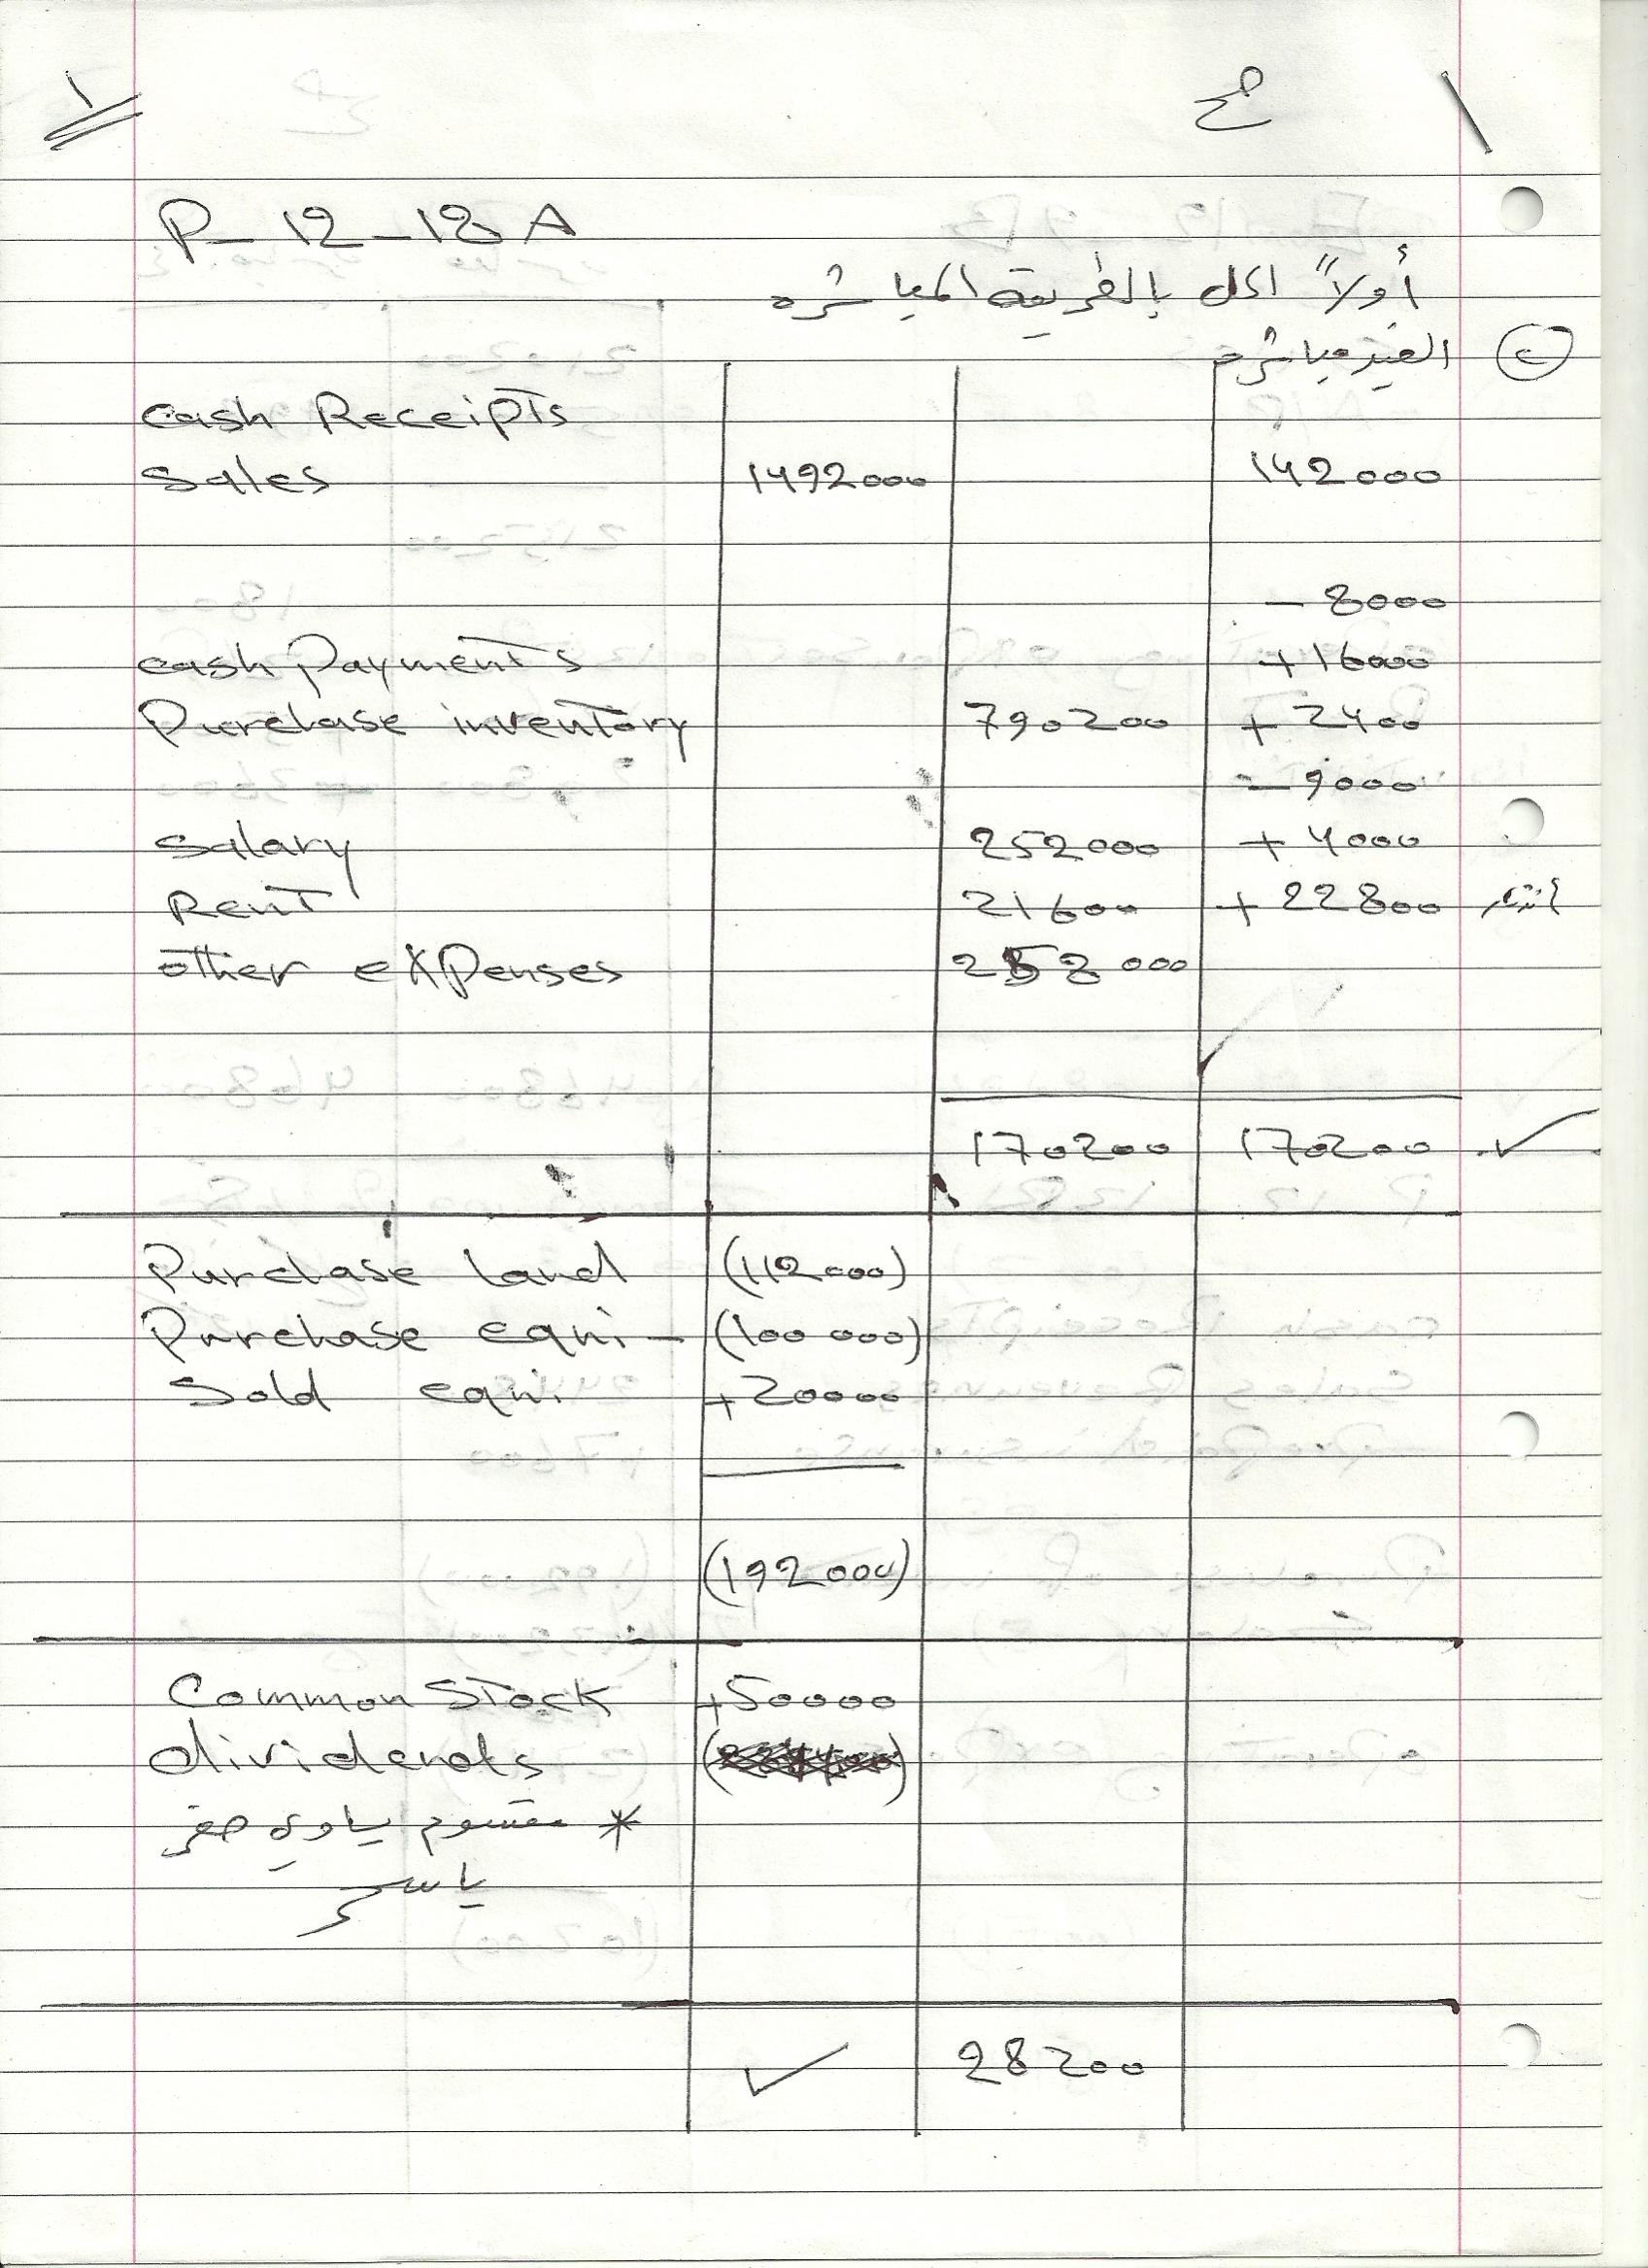 ١
P-12-18A
أولاً الحل بالطريقة المباشره
الغير مباشره
Cash Receipts
Sales 1492000 142000
- 8000
Cash Payments +16000
Purchase inventory 790200 + 2400
- 9000
Salary 252000 + 4000
Rent 21600 + 22800
other exPenses 258000
170200 170200 ✓
Purchase land (112000)
Purchase equi - (100 000)
Sold equi. +20000
(192000)
Common Stock +50000
dividends
* مقسوم يساوي صفر
ياسر
✓ 28200